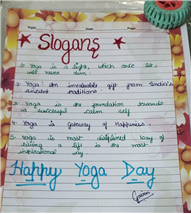 Slogans
Yoga is a light, which once lit
will never dim.
Yoga An invaluable gift from India's
ancient traditions
Yoga is the foundation towards
a successful calm self
Yoga is Gateway of Happiness.
Yoga is most disciplined way of
living a life is the most
inspirational way
Happy Yoga Day